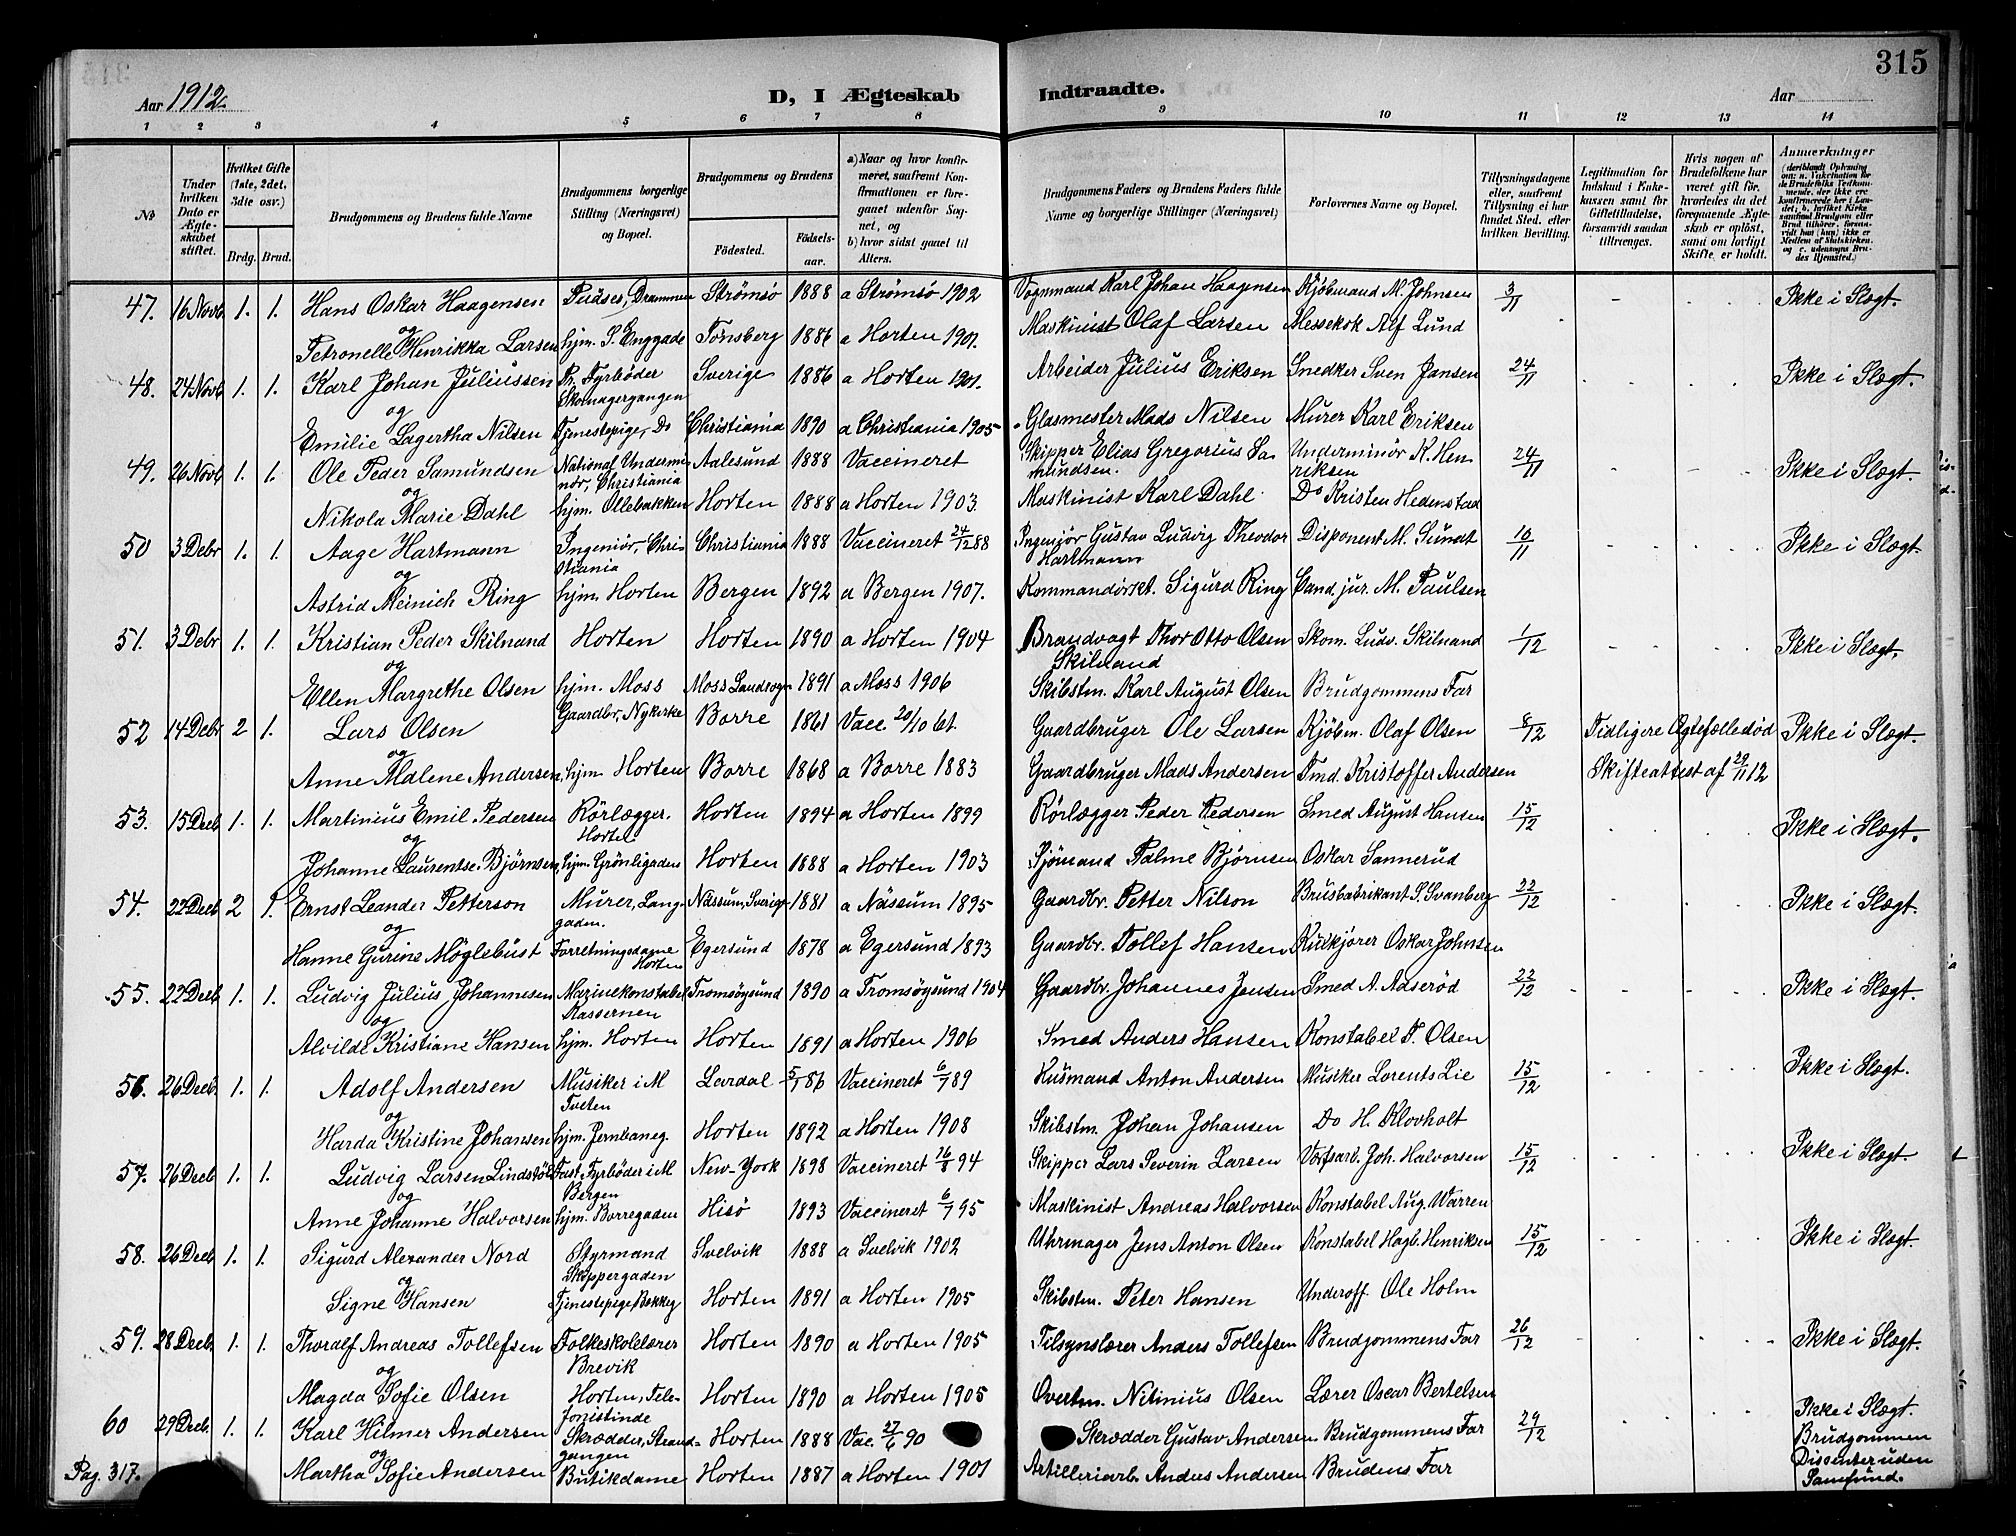 315
Aar 1912.
D, I Ægteskab Indtraadte.
Aar
1 2 3 4 5 6 7 8 9 10 11 12 13 14
No
Under hvilken Dato er Ægteskabet stiftet.
Hvilket Gifte (1ste, 2det, 3die osv.)
Brdg. Brud.
Brudgommens og Brudens fulde Navne
Brudgommens borgerlige Stilling (Næringsvei) og Bopæl.
Brudgommens og Brudens
Fødested. Fødselsaar.
a) Naar og hvor konfirmeret, saafremt Konfirmationen er foregaaet udenfor Sognet, og
b) hvor sidst gaaet til Alters.
Brudgommens Faders og Brudens Faders fulde Navne og borgerlige Stillinger (Næringsvei)
Forlovernes Navne og Bopæl.
Tillysningsdagene eller, saafremt Tillysning ei har fundet Sted, efter hvilken Bevilling.
Legitimation for Indskud i Enkekassen samt for Giftetilladelse, forsaavidt saadan tiltrænges.
Hvis nogen af Brudefolkene har været gift før, hvorledes da det foregaaende Ægteskab er opløst, samt om lovligt Skifte er holdt.
Anmerkninger
47. 16 Novb 1. 1. Hans Oskar Haagensen Pudses, Drammen Strømsø 1888 a Strømsø 1902 Vognmand Karl Johan Haagensen Kjøbmand M. Johnsen 3/11 Ikke i Slægt.
og
Petronelle Henrikka Larsen hjm. S. Enggade Tønsberg 1886 a Horten 1901. Maskinist Olaf Larsen Messekok Alf Lund
48. 24 Novb 1. 1. Karl Johan Juliussen Pr. Fyrbøder Skomagergangen Sverige 1886 a Horten 1901. Arbeider Julius Eriksen Snedker Sven Jansen 24/11 Ikke i Slægt.
og
Emilie Lagertha Nilsen Tjenestepige, Do Christiania 1890 a Christiania 1905 Glasmester Mads Nilsen Murer Karl Eriksen
49. 26 Novb 1. 1. Ole Peder Samundsen National Underminør, Christiania Aalesund 1888 Vaccineret Skipper Elias Gregorius Samundsen. Underminør K. Henriksen 24/11 Ikke i Slægt.
og
Nikola Marie Dahl hjm. Ollebakken Horten 1888 a Horten 1903. Maskinist Karl Dahl. Do Kristen Hedenstad
50 3 Debr 1. 1. Aage Hartmann Ingeniør, Christiania Christiania 1888 Vaccineret 24/12 88 Ingeniør Gustav Ludvig Theodor Hartmann Disponent M. Sundt 10/11 Ikke i Slægt.
og
Astrid Meinich Ring hjm. Horten Bergen 1892 a Bergen 1907. Kommandørkt. Sigurd Ring Cand. jur. M. Paulsen
51. 3 Debr 1. 1. Kristian Peder Skilnand Horten Horten 1890 a Horten 1904 Brandvagt Thor Otto Olsen Skilnand Skom. Ludv. Skilnand 1/12 Ikke i Slægt.
og
Ellen Margrethe Olsen hjm. Moss Moss Landsogn 1891 a Moss 1906 Skibstm. Karl August Olsen Brudgommens Far
52 14 Debr 2 1. Lars Olsen Gaardbr, Nykirke Borre 1861 Vacc. 20/10 61. Gaardbruger Ole Larsen Kjøbm. Olaf Olsen 8/12 Tidligere Ægtefælle død Ikke i Slægt.
og
Anne Malene Andersen hjm. Horten Borre 1868 a Borre 1883 Gaardbruger Mads Andersen Tmd. Kristoffer Andersen Skifteattest af 29/11 12
53. 15 Decb 1. 1. Martinius Emil Pedersen Rørlægger. Horten Horten 1894 a Horten 1899 Rørlægger Peder Pedersen Smed August Hansen 15/12 Ikke i Slægt.
og
Johanne Laurentse Bjørnsen hjm. Grønligaden Horten 1888 a Horten 1903 Sjømand Palme Bjørnsen Oskar Sannerud
54. 22 Decb 2 1. Ernst Leander Petterson Murer, Langgaden. Nässum, Sverige 1881 a Nässum 1895 Gaardbr. Petter Nilson Brusfabrikant S. Svanberg 22/12 Ikke i Slægt.
og
Hanne Gurine Møglebust Forretningsdame Horten Egersund 1878 a Egersund 1893 Gaardbr. Tollef Hansen Kulkjører Oskar Johnsen
55. 22 Decb 1. 1. Ludvig Julius Johannesen Marinekonstabel Kassernen Tromsøysund 1890 a Tromsøysund 1904 Gaardbr. Johannes Jensen Smed A. Adserød 22/12 Ikke i Slægt.
og
Alvilde Kristiane Hansen hjm. Horten Horten 1891 a Horten 1906 Smed Anders Hansen Konstabel T. Olsen
56. 26 Decb 1. 1. Adolf Andersen Musiker i M Tveten Lardal 5/1 86 Vaccineret 6/7 89 Husmand Anton Andersen Musiker Lorents Lie 15/12 Ikke i Slægt.
og
Harda Kristine Johansen hjm. Jernbaneg. Horten 1892 a Horten 1908 Skibstm. Johan Johansen Do H. Klovholt
57. 26 Decb 1. 1. Ludvig Larsen Fast Fyrbøder i M Bergen New-York 1898 Vaccineret 16/8 94 Skipper Lars Severin Larsen Verfsarb. Joh. Halvorsen 15/12 Ikke i Slægt.
og
Anne Johanne Halvorsen hjm. Borregaden Hisø 1893 Vaccineret 6/7 95 Maskinist Andreas Halvorsen Konstabel Aug. Warren
58. 26 Decb 1. 1. Sigurd Alexander Nord Styrmand Skippergaden Svelvik 1888 a Svelvik 1902 Uhrmager Jens Anton Olsen Konstabel Hagb. Henriksen 15/12 Ikke i Slægt.
og
Signe Hansen Tjenestepige, Bekkeg Horten 1891 a Horten 1905 Skibstm. Peter Hansen Underoff. Ole Holm
59. 28 Decb. 1. 1. Thoralf Andreas Tollefsen Folkeskolelærer Brevik Horten 1890 a Horten 1905 Tilsynslærer Anders Tollefsen Brudgommens Far 26/12 Ikke i Slægt.
og
Magda Sofie Olsen Horten, Telefonistinde Horten 1890 a Horten 1905 Overtm. Nilinius Olsen Lærer Oscar Bertelsen
60 29 Decb. 1. 1. Karl Hilmer Andersen Skrædder, Strandgangen Horten 1888 Vac. 27/6 90 Skrædder Gustav Andersen. Brudgommens Far 29/12 Ikke i Slægt. Brudgommen Dissenter uden Samfund.
og
Pag. 317. Martha Sofie Andersen Butikdame Horten 1887 a Horten 1901 Artilleriarb. Anders Andersen Brudens Far